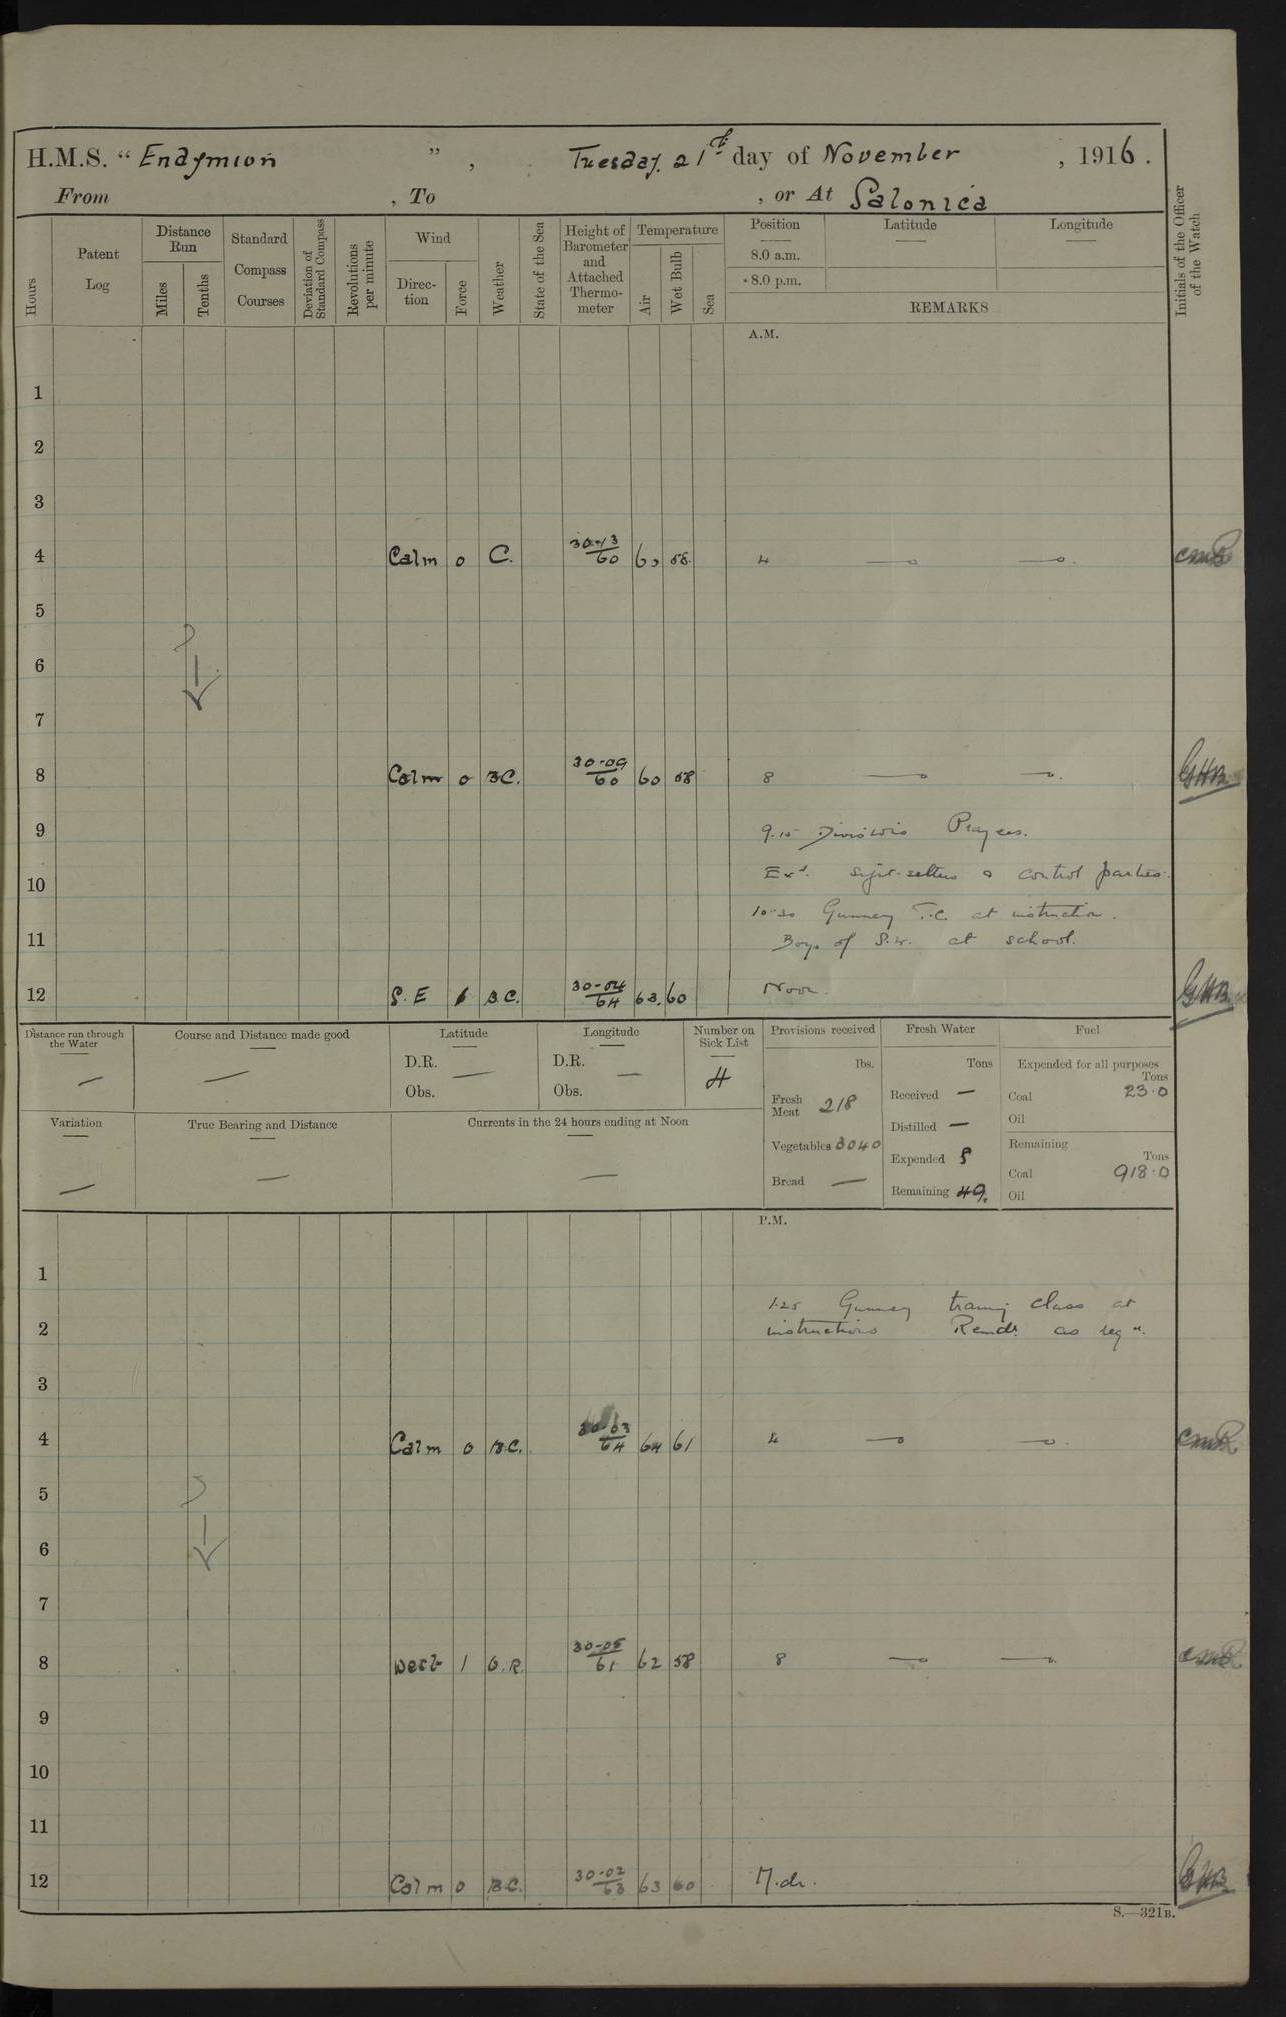 H.M.S. “ Endymion ” , Tuesday. 21st day of November , 1916 .
From , To , or At Salonica
Hours
Patent Log
Distance Run
Miles
Tenths
Standard Compass Courses
Deviation of Standard Compass
Revolutions per minute
Wind
Direction
Force
Weather
State of the Sea
Height of Barometer and Attached Thermometer
Temperature
Air
Wet Bulb
Sea
Position
8.0 a.m.
8.0 p.m.
Latitude
Longitude
REMARKS
Initials of the Officer of the Watch
A.M.
1
2
3
4 Calm 0 C. 30.13/60 60 58 4
5
6
7
8 Calm 0 BC. 30-09/60 60 58 8 GHB
9 9.15 Divisions Prayers.
10 Exd. sight-setters & control parties.
10.30 Gunnery T.C. at instruction.
11 Boys of S.W. at school.
12 S.E 1 B.C. 30-04/64 63. 60 Noon. GHB
Distance run through the Water
Course and Distance made good
Latitude
D.R.
Obs.
Longitude
D.R.
Obs.
Number on Sick List
4
Provisions received
lbs.
Fresh Meat 218
Vegetables 3040
Bread —
Fresh Water
Tons
Received —
Distilled —
Expended
Remaining 49.
Fuel
Expended for all purposes
Tons
Coal 23.0
Oil
Remaining
Tons
Coal 918.0
Oil
Variation
True Bearing and Distance
Currents in the 24 hours ending at Noon
P.M.
1
1.25 Gunnery training class at
2 instructions Hands as reqd.
3
4 Calm 0 B.C. 30-03/64 64 61 4
5
6
7
8 West 1 O.R. 30-05/61 62 58 8
9
10
11
12 Calm 0 B.C. 30-02/63 63 60 M.dn. GHB
S.—321B.